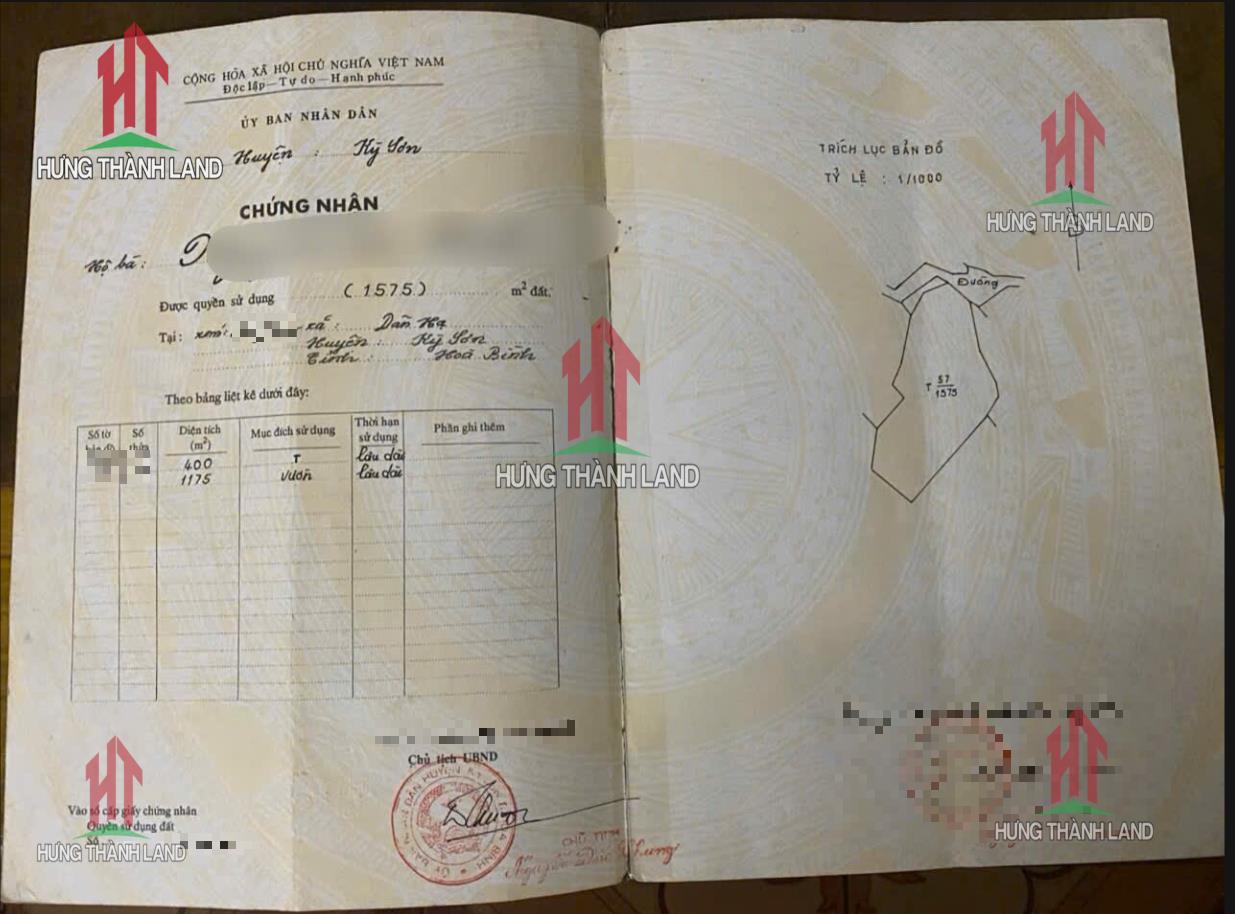 CỘNG HÒA XÃ HỘI CHỦ NGHĨA VIỆT NAM
Độc lập — Tự do — Hạnh phúc
ỦY BAN NHÂN DÂN
Huyện : Kỳ Sơn
CHỨNG NHẬN
Hộ bà :
Được quyền sử dụng (1575) m² đất,
Tại : xóm: xã : Dân Hạ
Huyện : Kỳ Sơn
Tỉnh : Hoà Bình
Theo bảng liệt kê dưới đây:
Số tờ Số thửa Diện tích (m²) Mục đích sử dụng Thời hạn sử dụng Phần ghi thêm
400 T Lâu dài
1175 vườn Lâu dài
Chủ tịch UBND
CHỦ TỊCH
Vào sổ cấp giấy chứng nhận
Quyền sử dụng đất
Số
TRÍCH LỤC BẢN ĐỒ
TỶ LỆ : 1/1000
Đường
T 57
1575
HT
HƯNG THÀNH LAND
HT
HƯNG THÀNH LAND
HT
HƯNG THÀNH LAND
HT
HƯNG THÀNH LAND
HT
HƯNG THÀNH LAND